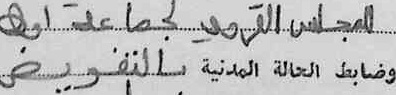 المجلس القروي لجماعة اولاد
وضابط الحالة المدنية بالتفويض